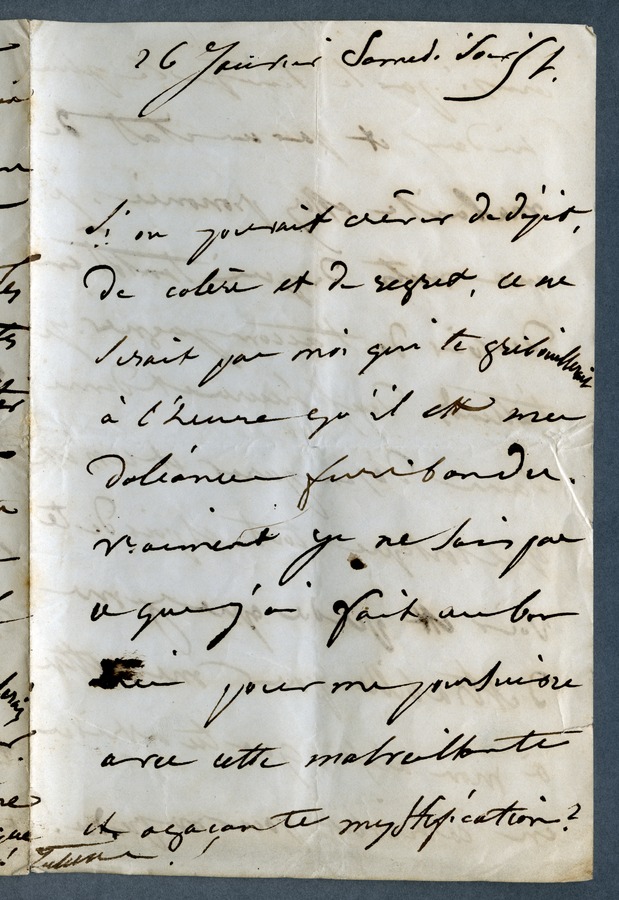 26 Janvier Samedi Soir
Si on pouvait crêver de dépit,
de colère et de regret, ce ne
serait pas moi qui te gribouillerait
à l'heure qu'il est mes
doléances furibondes.
vraiment je ne sais pas
ce que j'ai fait au bon
pour me poursuivre
avec cette malveillante
et agaçante mystification?